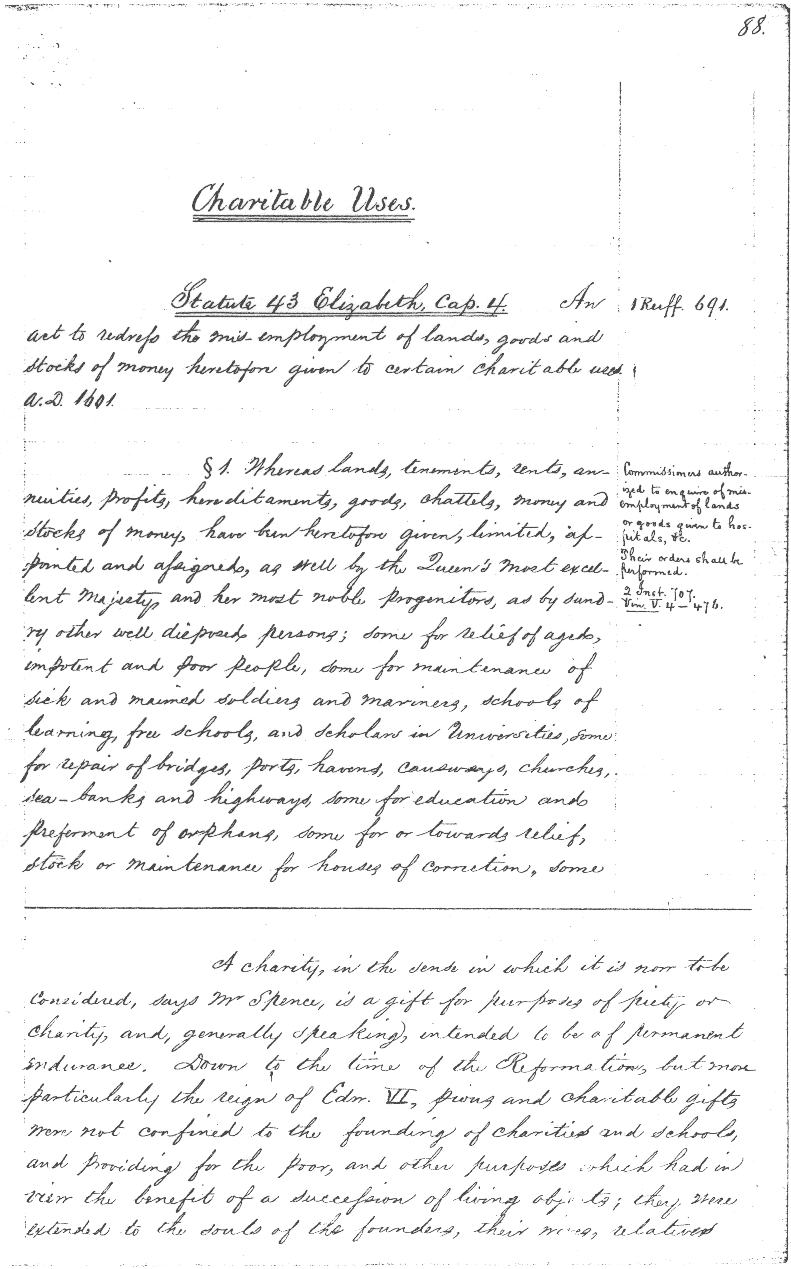 88.
Charitable Uses.
Statute 43 Elizabeth, Cap. 4. An
act to redress the mis-employment of lands, goods and
stocks of money heretofore given to certain charitable uses
A.D. 1601.
1 Ruff. 691.
§1. Whereas lands, tenements, rents, an-
nuities, profits, hereditaments, goods, chattels, money and
stocks of money, have been heretofore given, limited, ap-
pointed and assigned, as well by the Queen's most excel-
lent Majesty, and her most noble progenitors, as by sund-
ry other well disposed persons; some for relief of aged,
impotent and poor people, some for maintenance of
sick and maimed soldiers and mariners, schools of
learning, free schools, and scholars in Universities, some
for repair of bridges, ports, havens, causways, churches,
sea-banks and highways, some for education and
preferment of orphans, some for or towards relief,
stock or maintenance for houses of correction, some
Commissioners author-
ized to enquire of mis-
employment of lands
or goods given to hos-
pitals, &c.
Their orders shall be
performed.
2 Inst. 707.
Vin. V. 4-476.
A charity, in the sense in which it is now to be
considered, says Mr Spence, is a gift for purposes of piety or
charity, and, generally speaking, intended to be of permanent
endurance. Down to the time of the Reformation, but more
particularly the reign of Edw. VI, pious and charitable gifts
were not confined to the founding of charities and schools,
and providing for the poor, and other purposes which had in
view the benefit of a succession of living objects; they were
extended to the souls of the founders, their wives, relatives